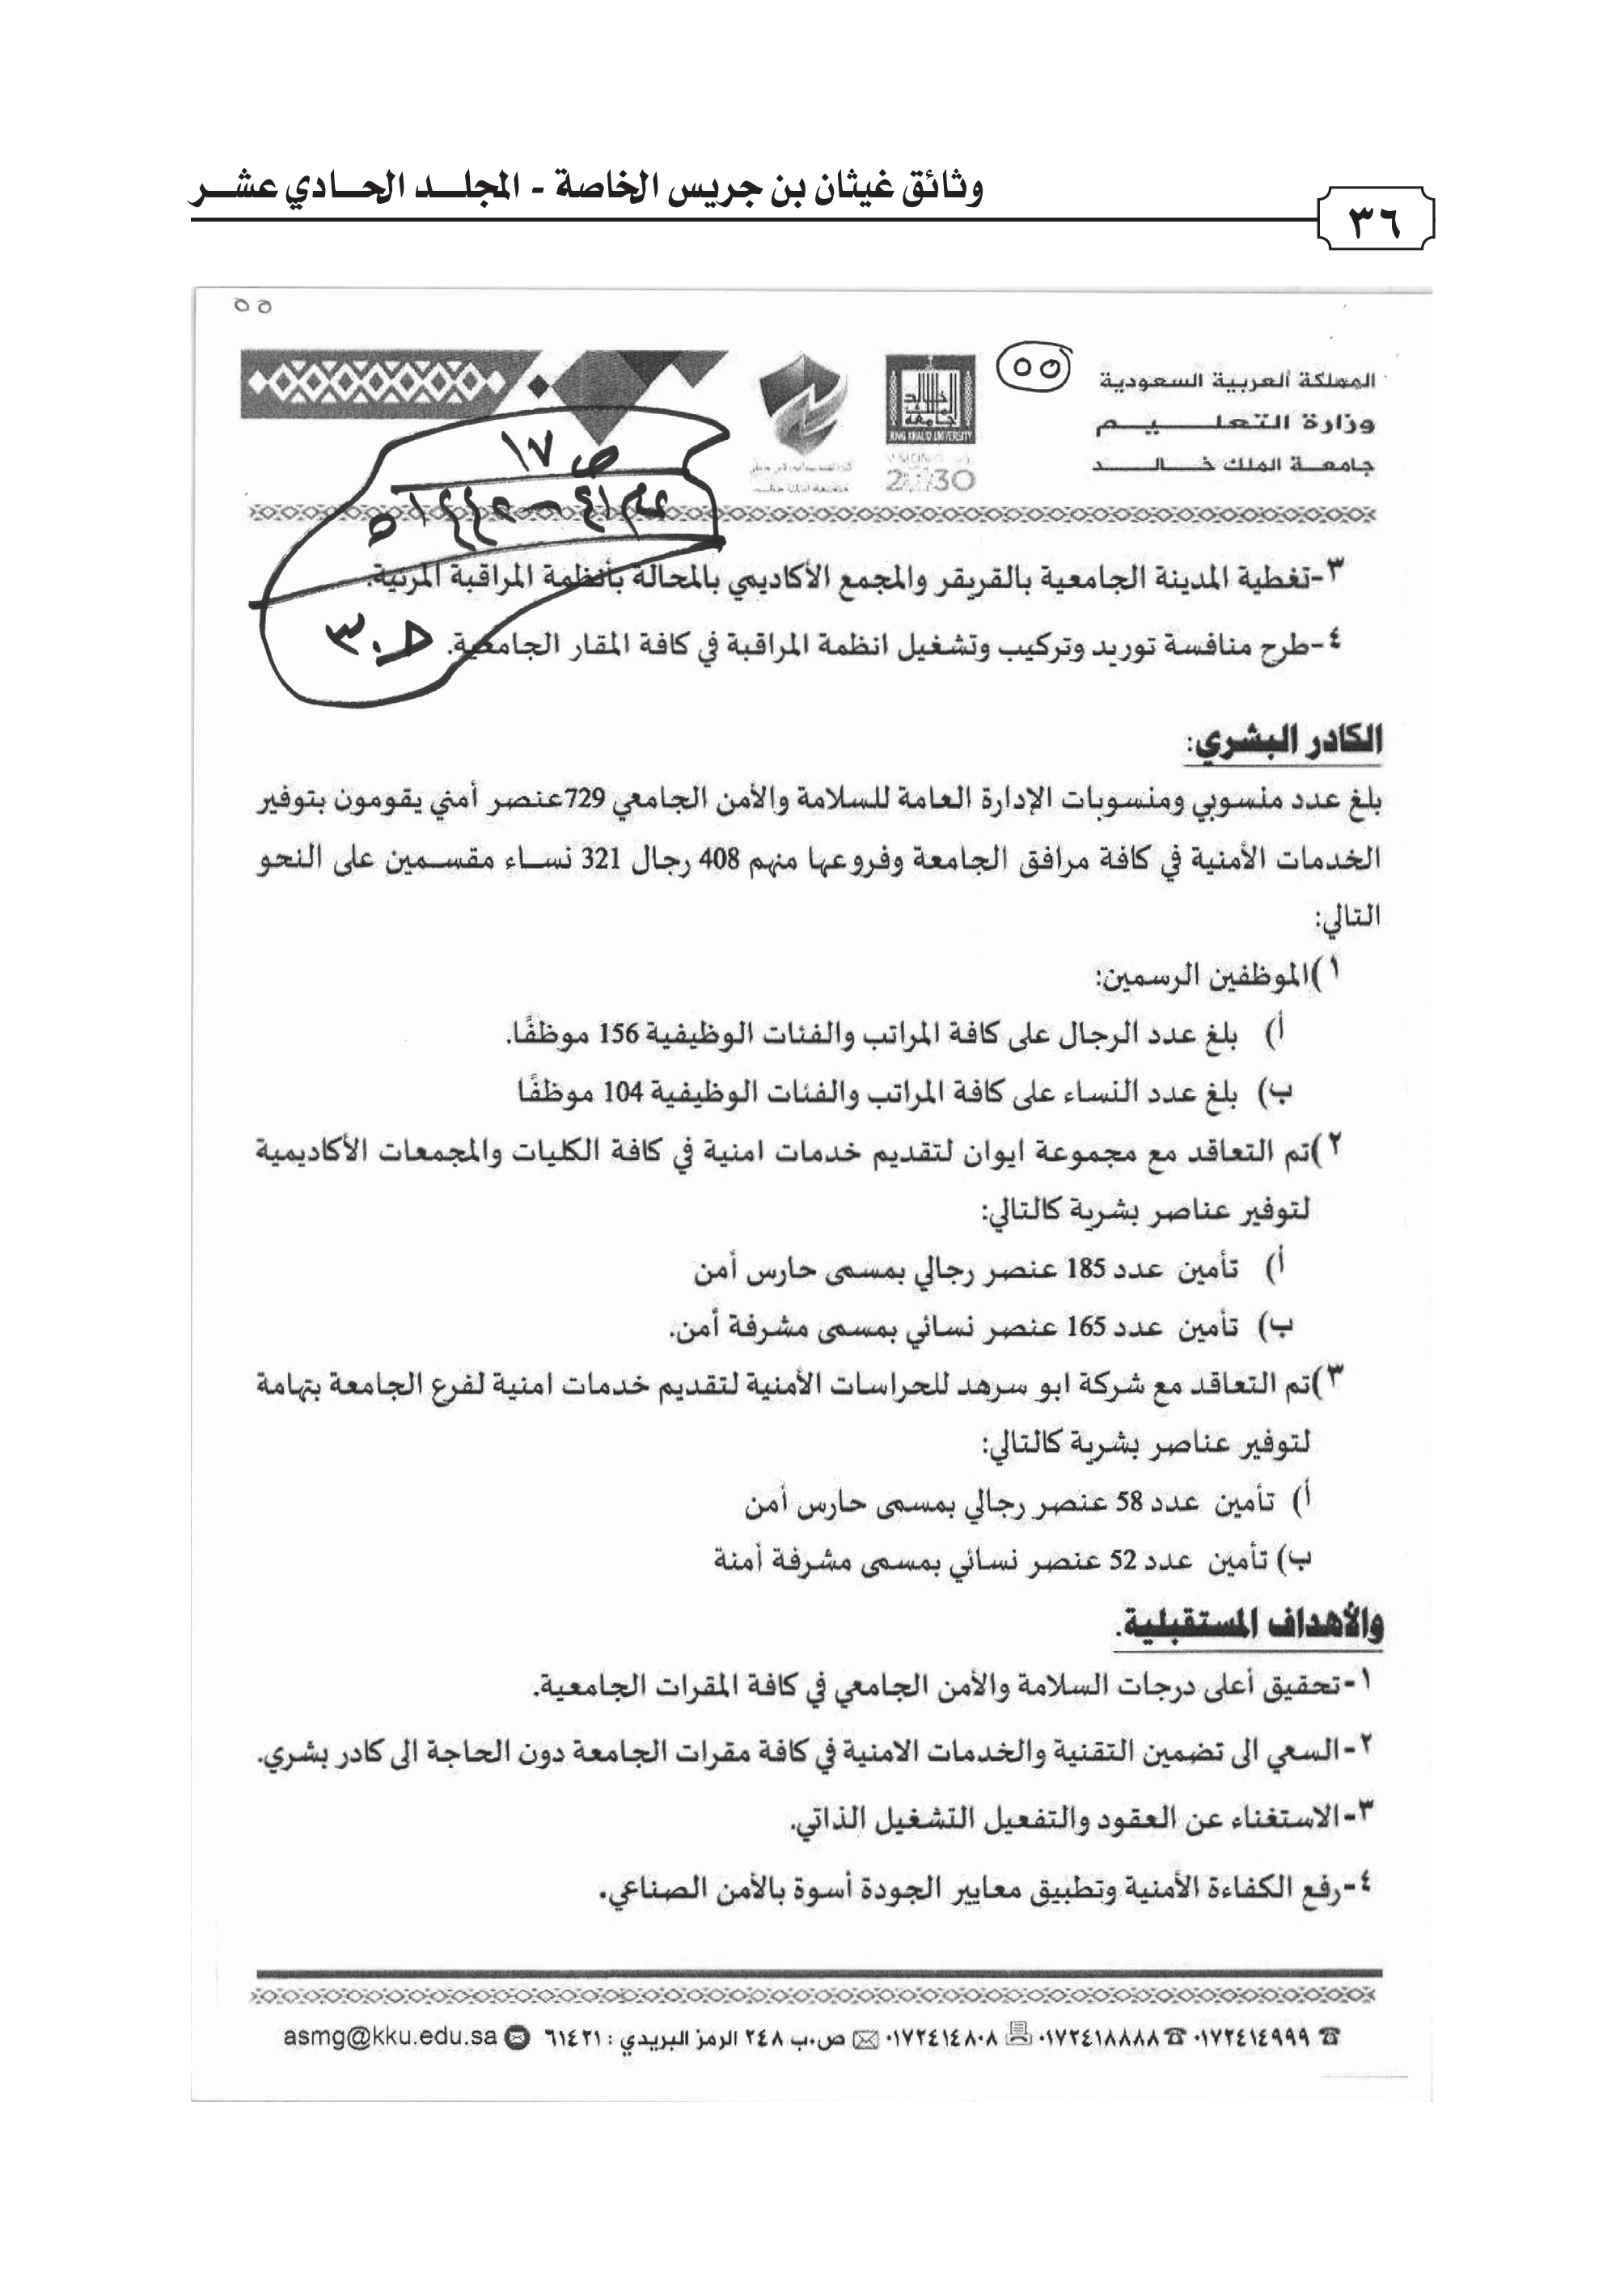 وثائق غيثان بن جريس الخاصة - المجلد الحادي عشر
٣٦
٥٥
٥٥
المملكة العربية السعودية
وزارة التعليم
جامعة الملك خالد
جامعة الملك خالد
KING KHALID UNIVERSITY
VISION
2030
ص ١٧
٣-تغطية المدينة الجامعية بالقريقر والمجمع الأكاديمي بالمحالة بأنظمة المراقبة المرئية.
٤-طرح منافسة توريد وتركيب وتشغيل انظمة المراقبة في كافة المقار الجامعية.
الكادر البشري:
بلغ عدد منسوبي ومنسوبات الإدارة العامة للسلامة والأمن الجامعي 729عنصر أمني يقومون بتوفير
الخدمات الأمنية في كافة مرافق الجامعة وفروعها منهم 408 رجال 321 نساء مقسمين على النحو
التالي:
١)الموظفين الرسمين:
أ) بلغ عدد الرجال على كافة المراتب والفئات الوظيفية 156 موظفًا.
ب) بلغ عدد النساء على كافة المراتب والفئات الوظيفية 104 موظفًا
٢)تم التعاقد مع مجموعة ايوان لتقديم خدمات امنية في كافة الكليات والمجمعات الأكاديمية
لتوفير عناصر بشرية كالتالي:
أ) تأمين عدد 185 عنصر رجالي بمسمى حارس أمن
ب) تأمين عدد 165 عنصر نسائي بمسمى مشرفة أمن.
٣)تم التعاقد مع شركة ابو سرهد للحراسات الأمنية لتقديم خدمات امنية لفرع الجامعة بتهامة
لتوفير عناصر بشرية كالتالي:
أ) تأمين عدد 58 عنصر رجالي بمسمى حارس أمن
ب) تأمين عدد 52 عنصر نسائي بمسمى مشرفة أمنة
والأهداف المستقبلية.
١-تحقيق أعلى درجات السلامة والأمن الجامعي في كافة المقرات الجامعية.
٢-السعي الى تضمين التقنية والخدمات الامنية في كافة مقرات الجامعة دون الحاجة الى كادر بشري.
٣-الاستغناء عن العقود والتفعيل التشغيل الذاتي.
٤-رفع الكفاءة الأمنية وتطبيق معايير الجودة أسوة بالأمن الصناعي.
٠١٧٢٤١٤٩٩٩ ٠١٧٢٤١٨٨٨٨ ٠١٧٢٤١٤٨٠٨ ص.ب ٢٤٨ الرمز البريدي : ٦١٤٢١ asmg@kku.edu.sa